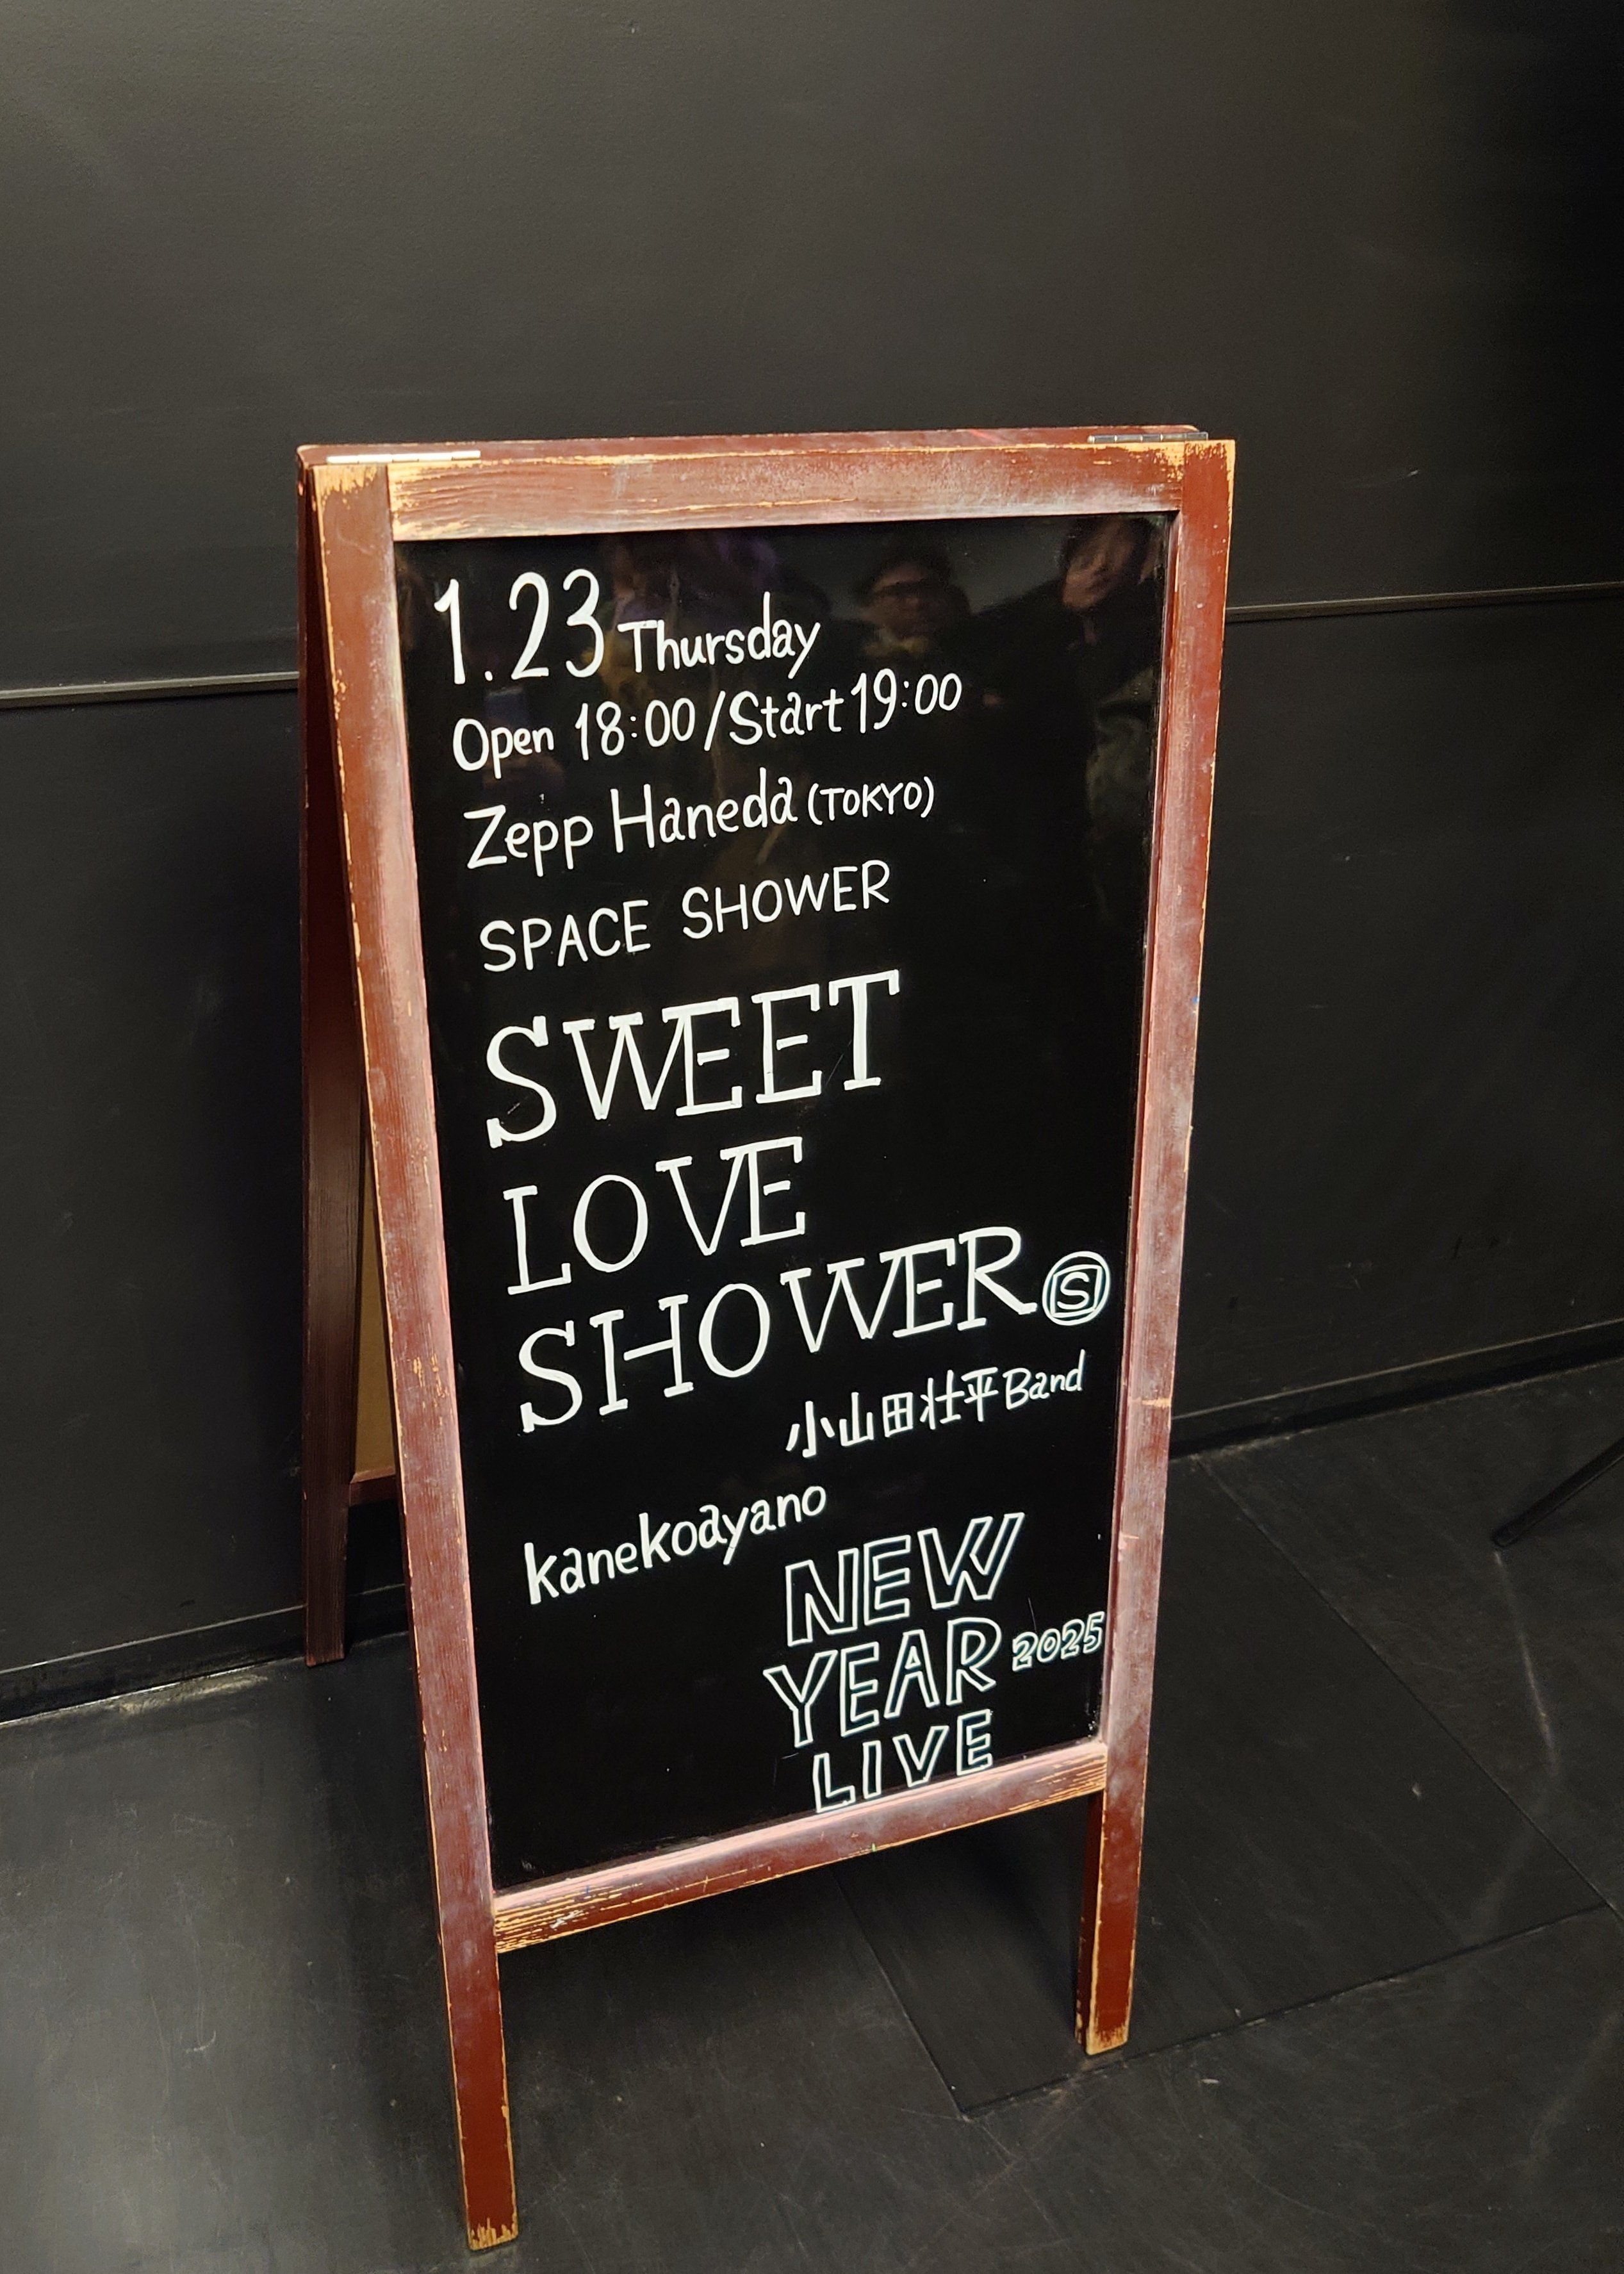 1.23 Thursday
Open 18:00/Start 19:00
Zepp Haneda (TOKYO)
SPACE SHOWER
SWEET
LOVE
SHOWER S
小山田壮平 Band
kanekoayano
NEW
YEAR 2025
LIVE